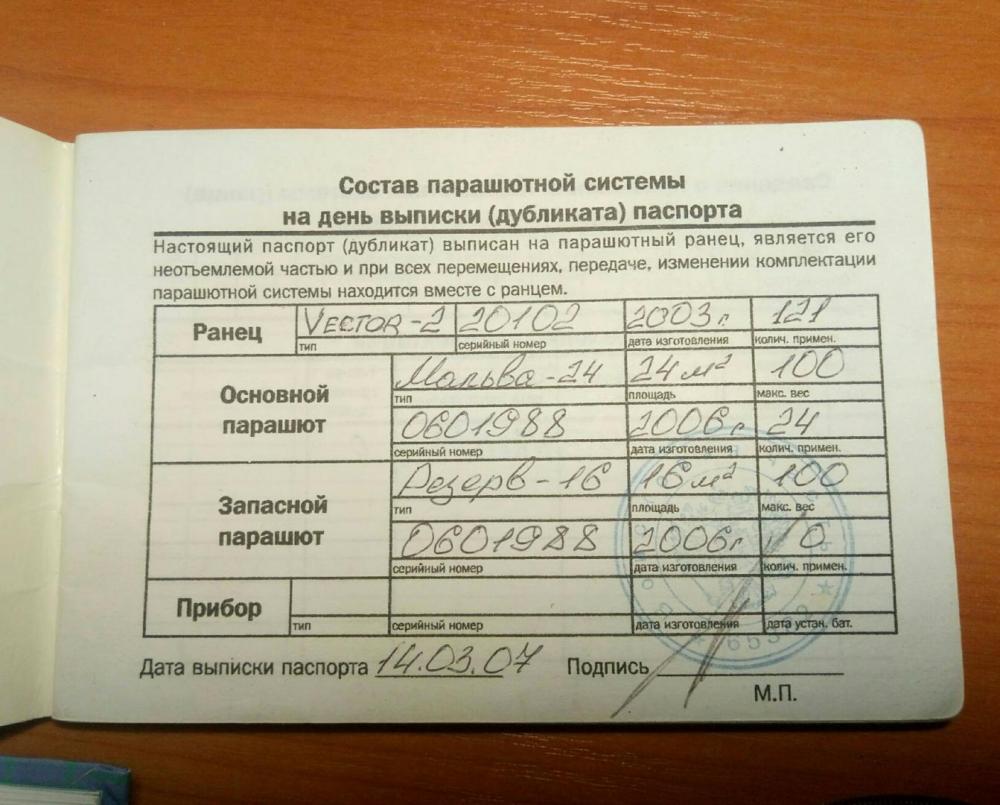 Состав парашютной системы
на день выписки (дубликата) паспорта
Настоящий паспорт (дубликат) выписан на парашютный ранец, является его
неотъемлемой частью и при всех перемещениях, передаче, изменении комплектации
парашютной системы находится вместе с ранцем.
Ранец VECTOR-2 20102 2003г. 121
тип серийный номер дата изготовления колич. примен.
Основной парашют Мальва-24 24м² 100
тип площадь макс. вес
0601988 2006г 24
серийный номер дата изготовления колич. примен.
Запасной парашют Резерв-16 16м² 100
тип площадь макс. вес
0601988 2006г. 0
серийный номер дата изготовления колич. примен.
Прибор
тип серийный номер дата изготовления дата устан. бат.
Дата выписки паспорта 14.03.07 Подпись
М.П.